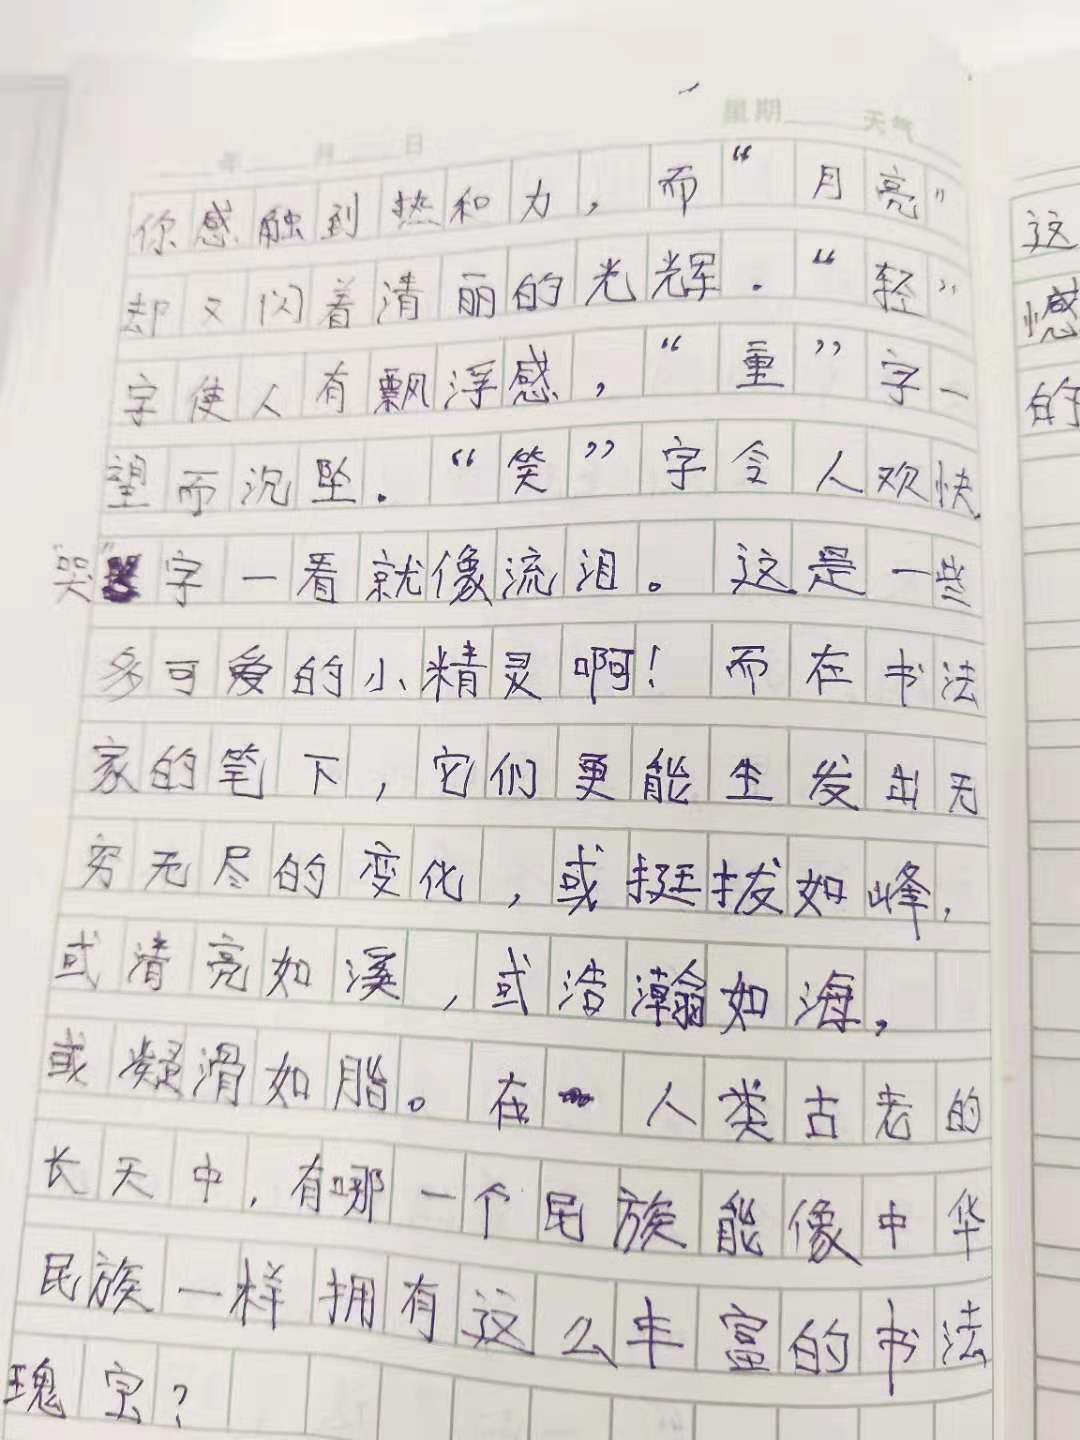 年 月 日 星期 天气
你感触到热和力，而“月亮”
却又闪着清丽的光辉．“轻”
字使人有飘浮感，“重”字一
望而沉坠．“笑”字令人欢快
哭”字一看就像流泪。这是一些
多可爱的小精灵啊！而在书法
家的笔下，它们更能生发出无
穷无尽的变化，或挺拔如峰，
或清亮如溪，或浩瀚如海，
或凝滑如脂。在人类古老的
长天中，有哪一个民族能像中华
民族一样拥有这么丰富的书法
瑰宝？
这
憾
的